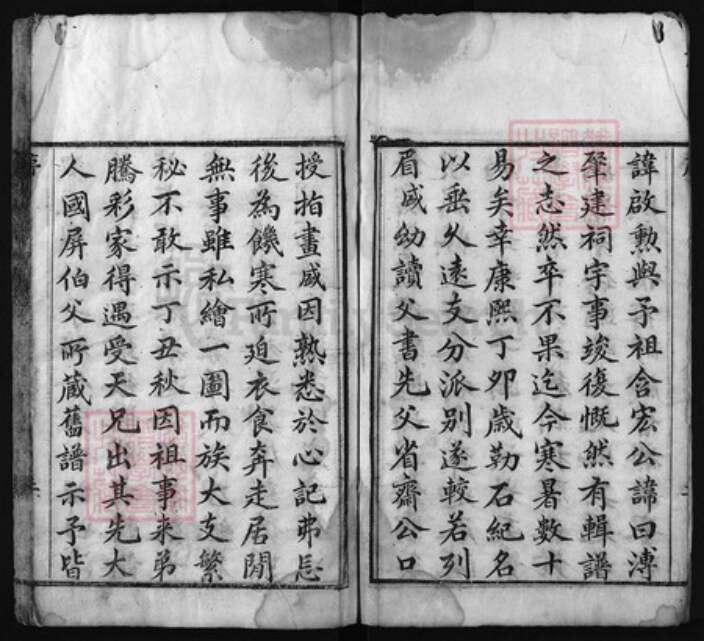 諱啟勲與予祖含宏公諱曰溥
肇建祠宇事竣復慨然有輯譜
之志然卒不果迄今寒暑數十
易矣幸康熙丁卯歲勒石紀名
以垂久遠支分派別遂較若列
眉咸幼讀父書先父省齋公口
授指畫咸因熟悉於心記弗忘
後為饑寒所廹衣食奔走居閒
無事雖私繪一圖而族大支繁
秘不敢示丁丑秋因祖事来弟
騰彩家得遇受天兄出其先大
人國屏伯父所藏舊譜示予皆